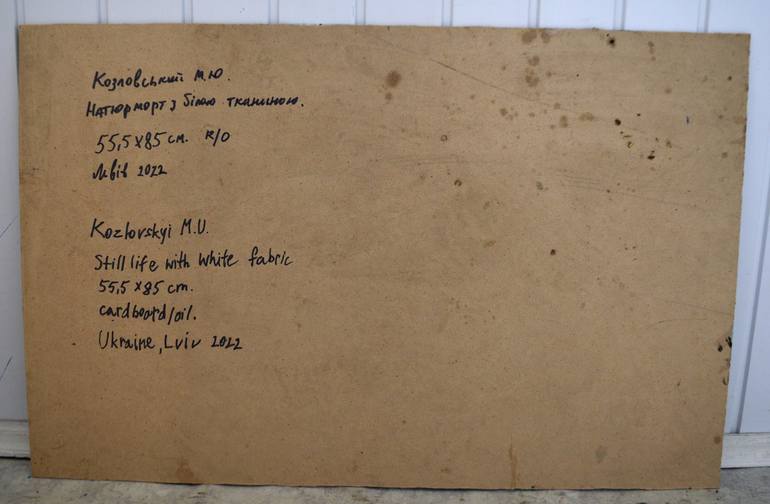 Козловський М.Ю.
Натюрморт з білою тканиною.
55,5х85 см. к/о
Львів 2022
Kozlovskyi M.U.
Still life with white fabric
55,5x85 cm.
cardboard/oil.
Ukraine, Lviv 2022